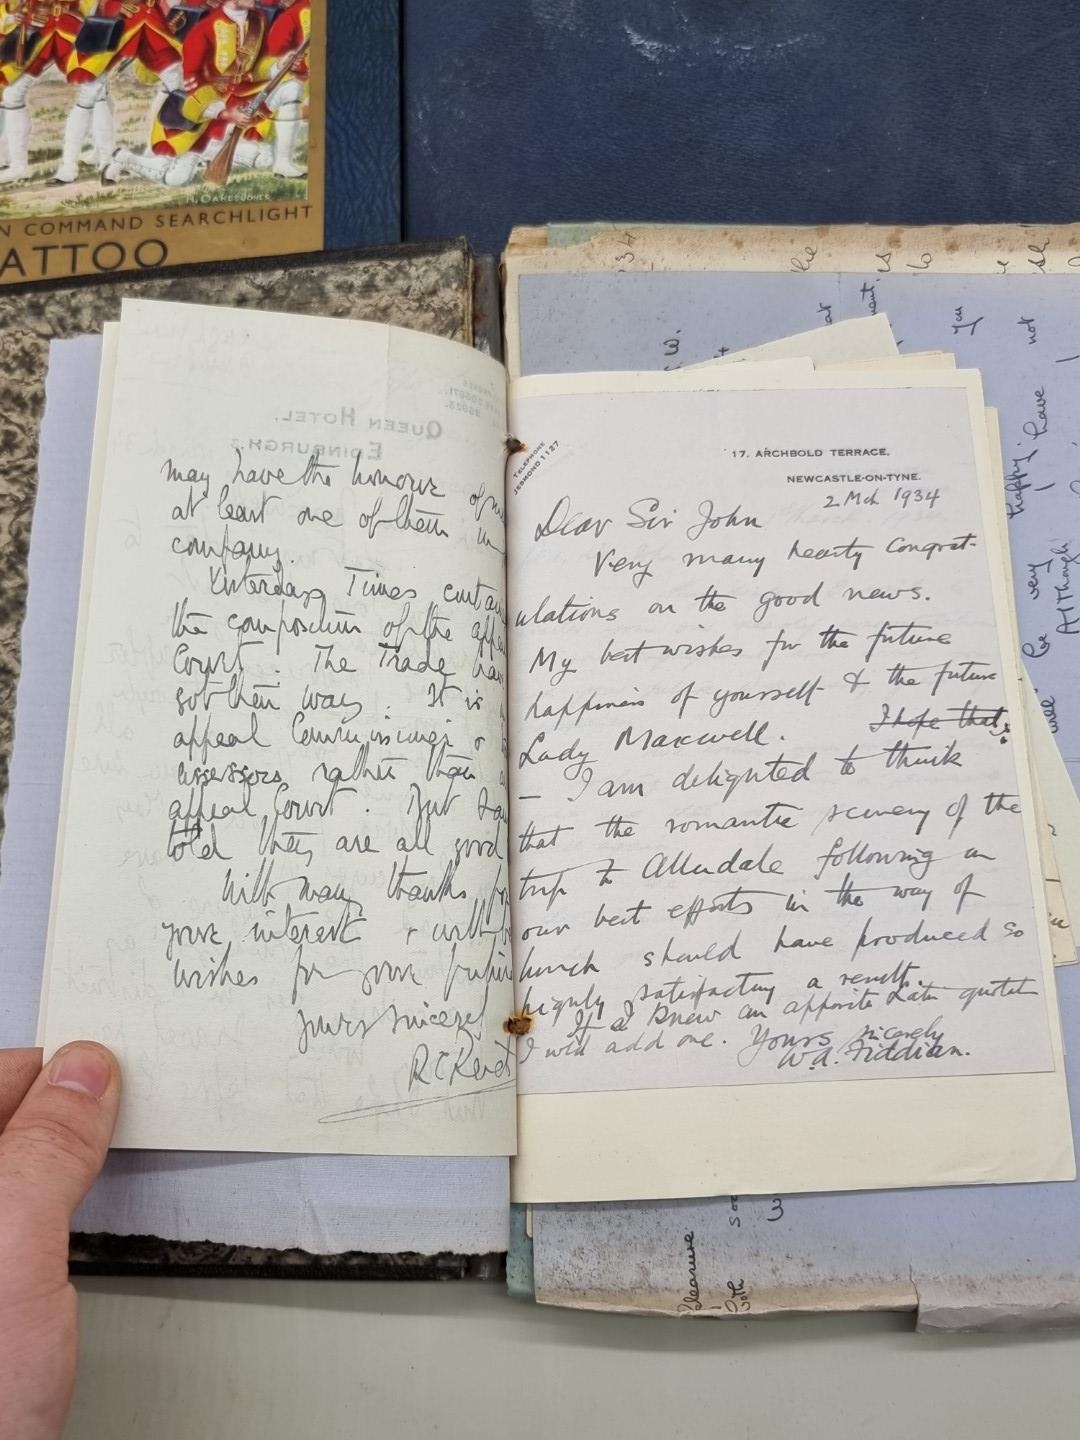 H. OAKES-JONES
N COMMAND SEARCHLIGHT
ATTOO
QUEEN HOTEL,
EDINBURGH, 3
may have the honour of
at least one of them in
company.
Yesterdays Times
the composition of the
Court. The Trade have
got their way. It is
appeal Commissioner &
assessors rather than
appeal Court. But I am
told they are all good
With many thanks for
your interest & with
wishes for your future
yours sincerely
TELEPHONE
JESMOND 1127
17. ARCHBOLD TERRACE,
NEWCASTLE-ON-TYNE.
2 Mch 1934
Dear Sir John
Very many hearty congrat-
ulations on the good news.
My best wishes for the future
happiness of yourself & the future
Lady Maxwell. I hope that
— I am delighted to think
that the romantic scenery of the
trip to Allendale following on
our best efforts in the way of
lunch should have produced so
highly satisfactory a result.
If I knew an apposite Latin
I wld add one. Yours sincerely
W.A. Fiddian.
34
the
is
to
W.
at
you
not
happy
have
I
be very
Although
will
Pleasure
both